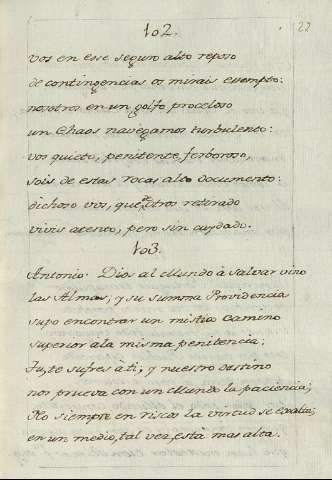 22
102.
vos en esse seguro alto reposo
de contingencias os mirais exempto:
nosotros en un golfo proceloso
un Chaos navegamos turbulento:
vos quieto, penitente, ferboroso,
sois de estas rocas alto documento:
dichoso vos, que de otros retirado
vivis atento, pero sin cuydado.
103.
Antonio. Dios al Mundo à salvar vino
las Almas, y su summa Providencia
supo encontrar un mistico camino
superior a la misma penitencia:
Tu, te sufres à ti, y nuestro destino
nos prueva con un Mundo la paciencia;
No siempre en riscos la virtud se exalta;
en un medio, tal vez, està mas alta.